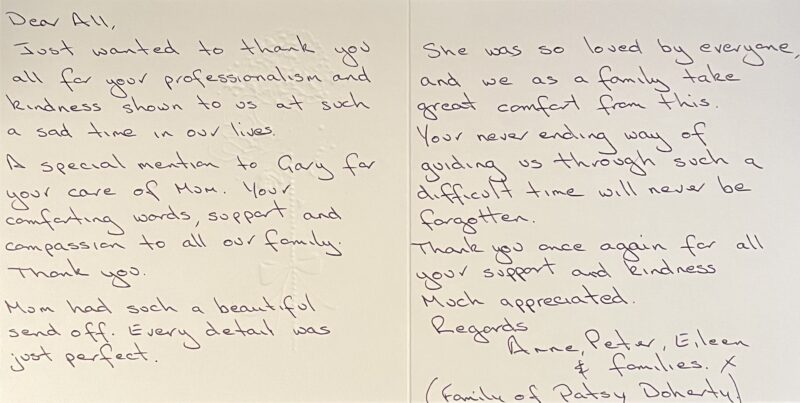 Dear All,
Just wanted to thank you
all for your professionalism and
kindness shown to us at such
a sad time in our lives.
A special mention to Gary for
your care of Mom. Your
comforting words, support and
compassion to all our family.
Thank you.
Mom had such a beautiful
send off. Every detail was
just perfect.
She was so loved by everyone,
and we as a family take
great comfort from this.
Your never ending way of
guiding us through such a
difficult time will never be
forgotten.
Thank you once again for all
your support and kindness
Much appreciated.
Regards
Anne, Peter, Eileen
& families. x
(Family of Patsy Doherty)